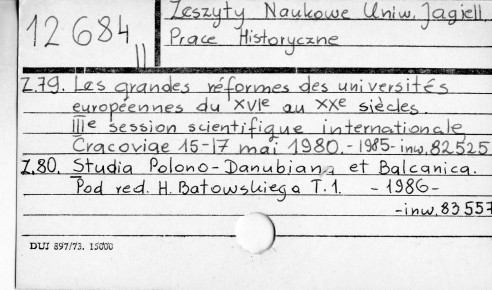 Zeszyty Naukowe Uniw. Jagiell.
12 684 II
Prace Historyczne
Z.79. Les grandes réformes des universités
européennes du XVIe au XXe siècles.
IIIe session scientifique internationale
Cracovige 15-17 mai 1980.-1985- inw. 82525
Z.80. Studia Polono-Danubiana et Balcanica.
Pod red. H. Batowskiego T.1. - 1986-
-inw. 83557
DUJ 897/73. 15000